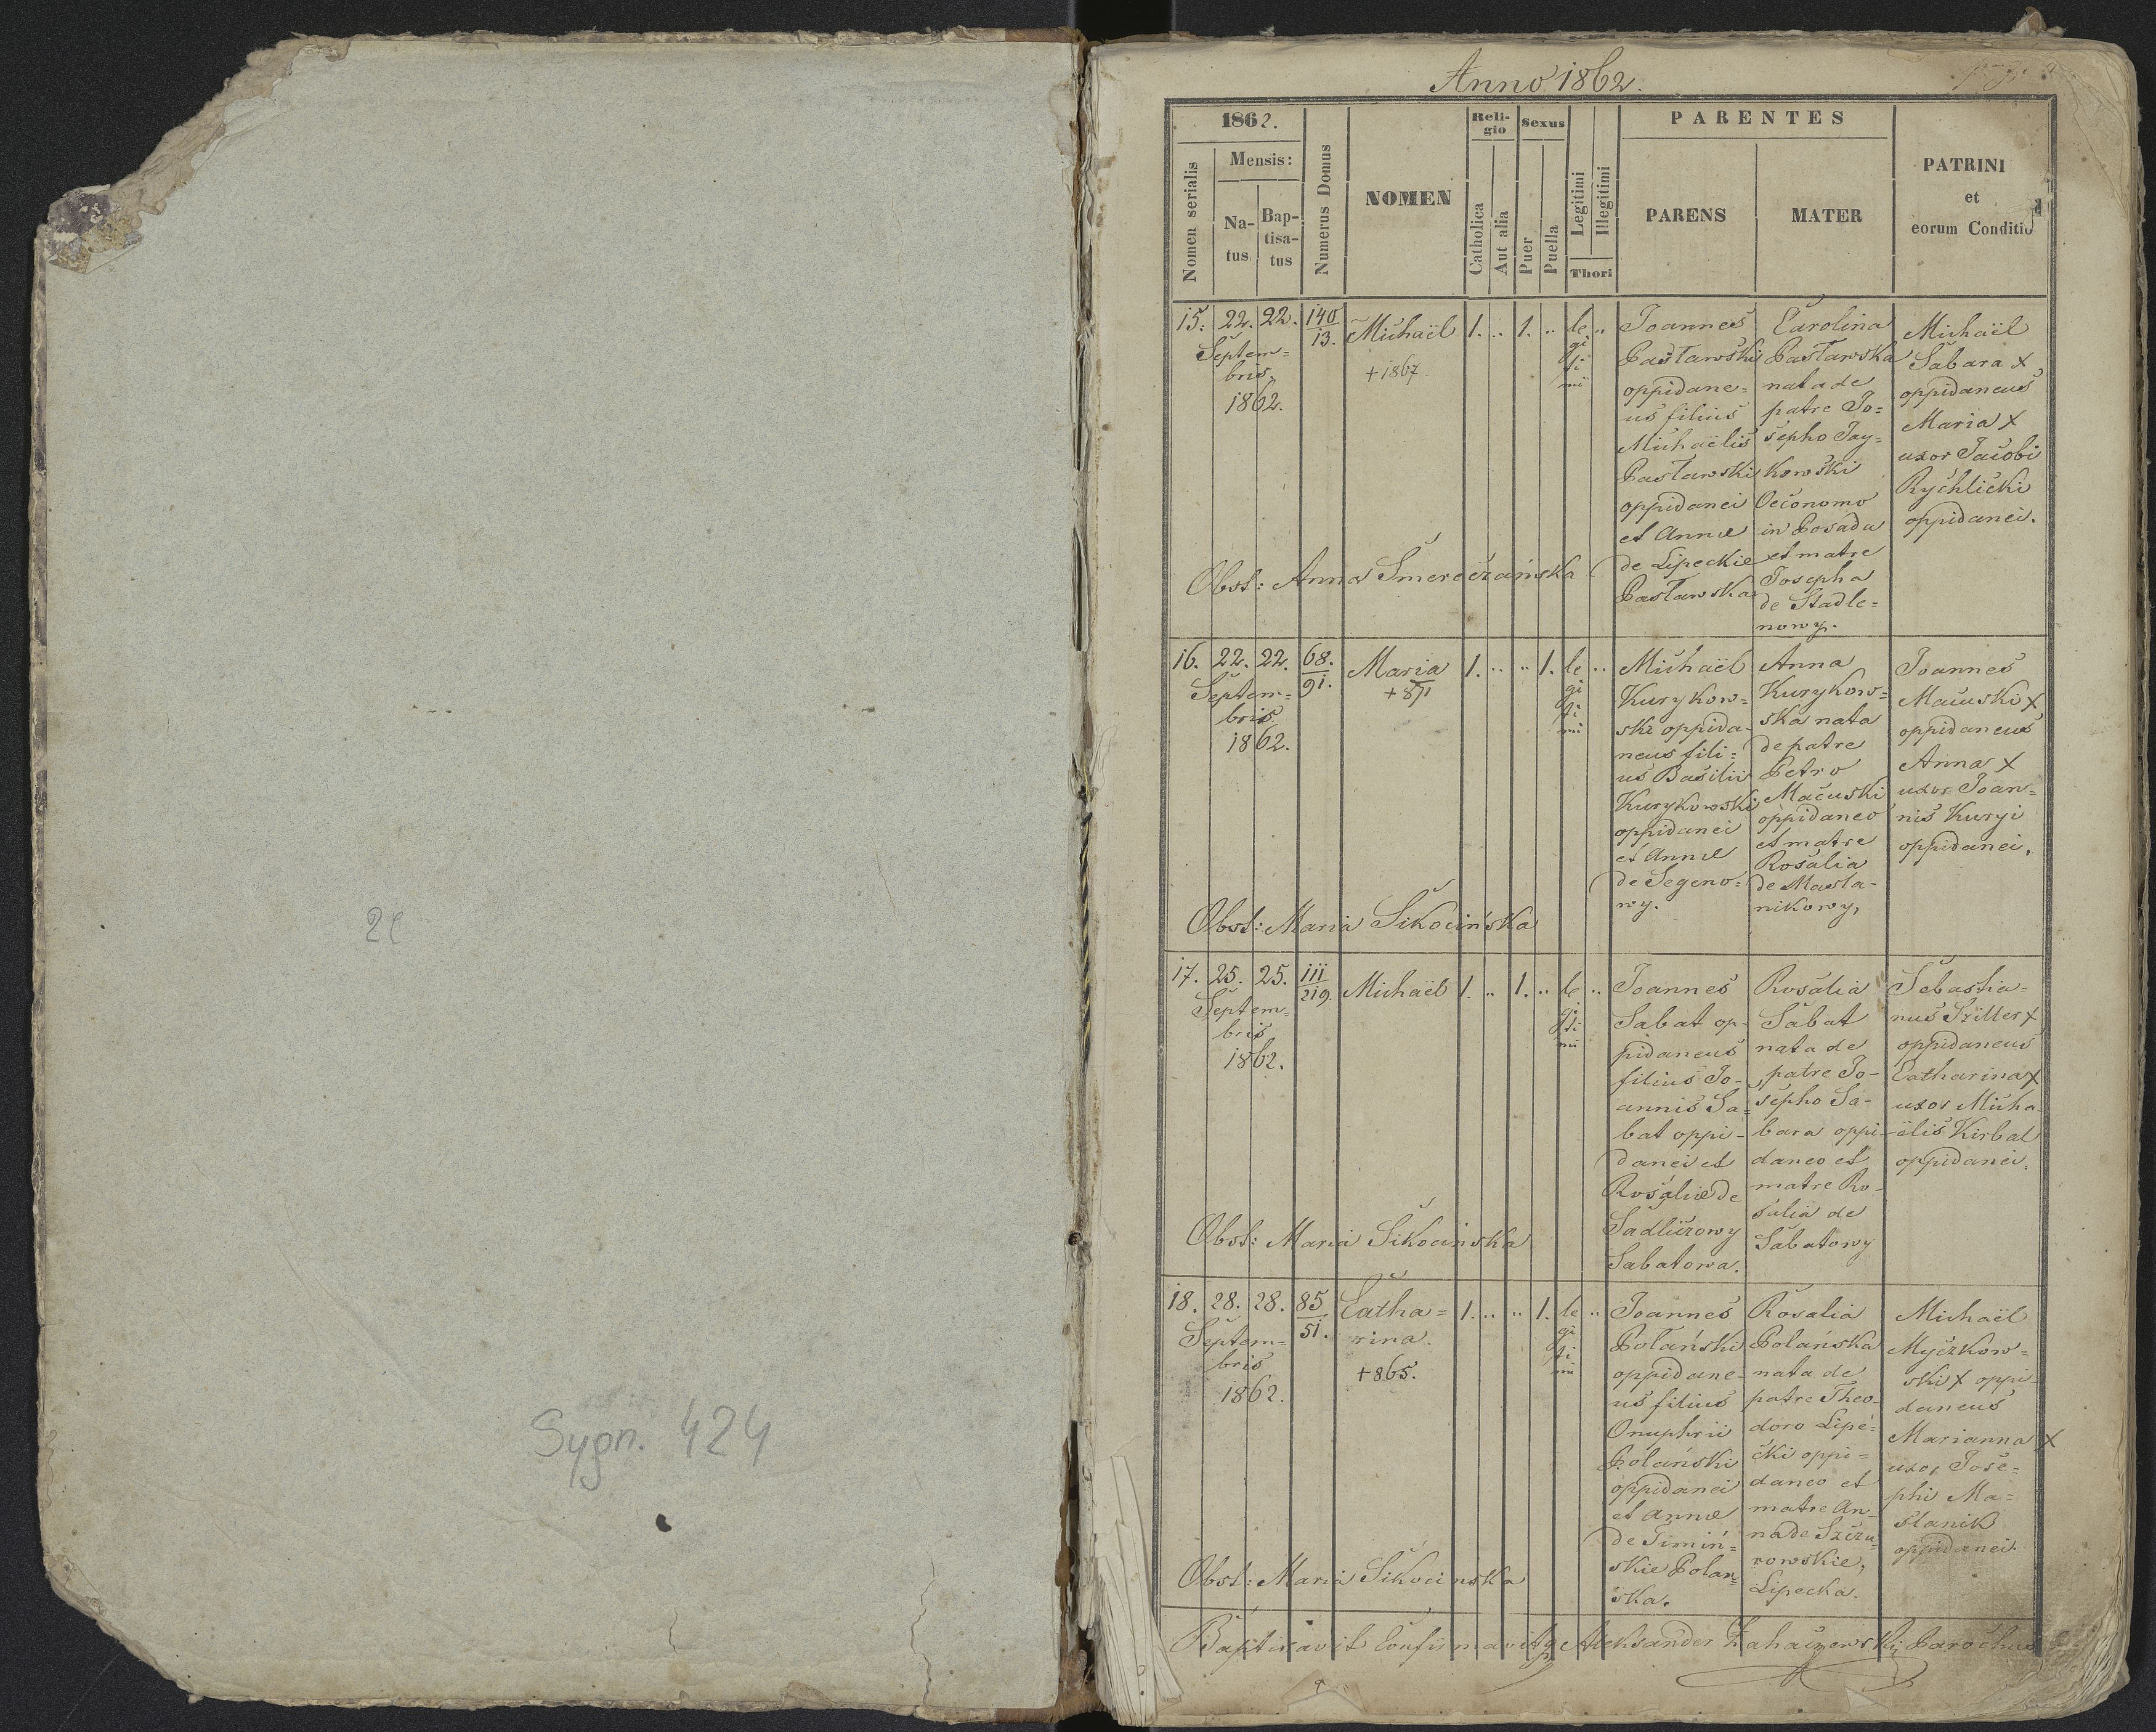 Sygn. 424
Anno 1862.
1862.
Nomen serialis
Mensis:
Na-
tus
Bap-
tisa-
tus
Numerus Domus
NOMEN
Reli-
gio
Catholica
Aut alia
Sexus
Puer
Puella
Legitimi
Illegitimi
Thori
PARENTES
PARENS
MATER
PATRINI
et
eorum Conditio
15. 22. 22. 140/13. Michaël 1. .. 1. .. le ..
Septem=
bris.
1862.
+1867
gi
ti
mi
Joannes
Pasławski
oppidane=
us filius
Michaëlis
Pasławski
oppidanei
et Annæ
de Lipeckie
Pasławska
Carolina
Pasławska
nata de
patre Jo=
sepho Jay=
kowski
Oeconomo
in Posada
et matre
Josepha
de Stadle=
nowy.
Michaël
Sabara x
oppidaneus
Maria x
uxor Jacobi
Rychlicki
oppidanei.
Obst: Anna Smereczańska
16. 22. 22. 68./91. Maria 1. .. .. 1. le ..
Septem=
bris.
1862.
+871
gi
ti
mi
Michaël
Kurykow=
ski oppida-
neus fili=
us Basilii
Kurykowski
oppidanei
et Annæ
de Segeno=
wy.
Anna
Kurykow=
ska nata
de patre
Petro
Macuski
oppidaneo
et matre
Rosalia
de Masla-
nikowy,
Joannes
Macuski x
oppidaneus
Anna x
uxor Joan=
nis Kuryi
oppidanei.
Obst: Maria Sikocińska
17. 25. 25. 111/219. Michaël 1. .. 1. .. le ..
Septem=
bris
1862.
gi
ti
mi
Joannes
Sabat op-
pidaneus
filius Jo-
annis Sa=
bat oppi-
danei et
Rosaliæ de
Sadlizowy
Sabatowa.
Rosalia
Sabat
nata de
patre Jo-
sepho Sa-
bara oppi-
daneo et
matre Ro-
salia de
Sabatowy
Sebastia=
nus Sziller x
oppidaneus
Catharina x
uxor Micha
ëlis Kirbal
oppidanei.
Obst: Maria Sikocinska
18. 28. 28. 85/51. Catha= 1. .. .. 1. le ..
rina.
Septem=
bris
1862.
+865.
gi
ti
mi
Joannes
Polański
oppidane-
us filius
Onuphrii
Polański
oppidanei
et Annæ
de Timiń=
skie Polan=
ska.
Rosalia
Polańska
nata de
patre Theo-
doro Lipe=
cki oppi=
daneo et
matre An-
na de Szczu
rowskie,
Lipecka.
Michaël
Myczkow=
ski x oppi-
daneus
Marianna x
uxor Jose=
phi Ma=
slanik
oppidanei.
Obst: Maria Sikocinska
Baptisavit Confirmavitq Aleksander Parochus